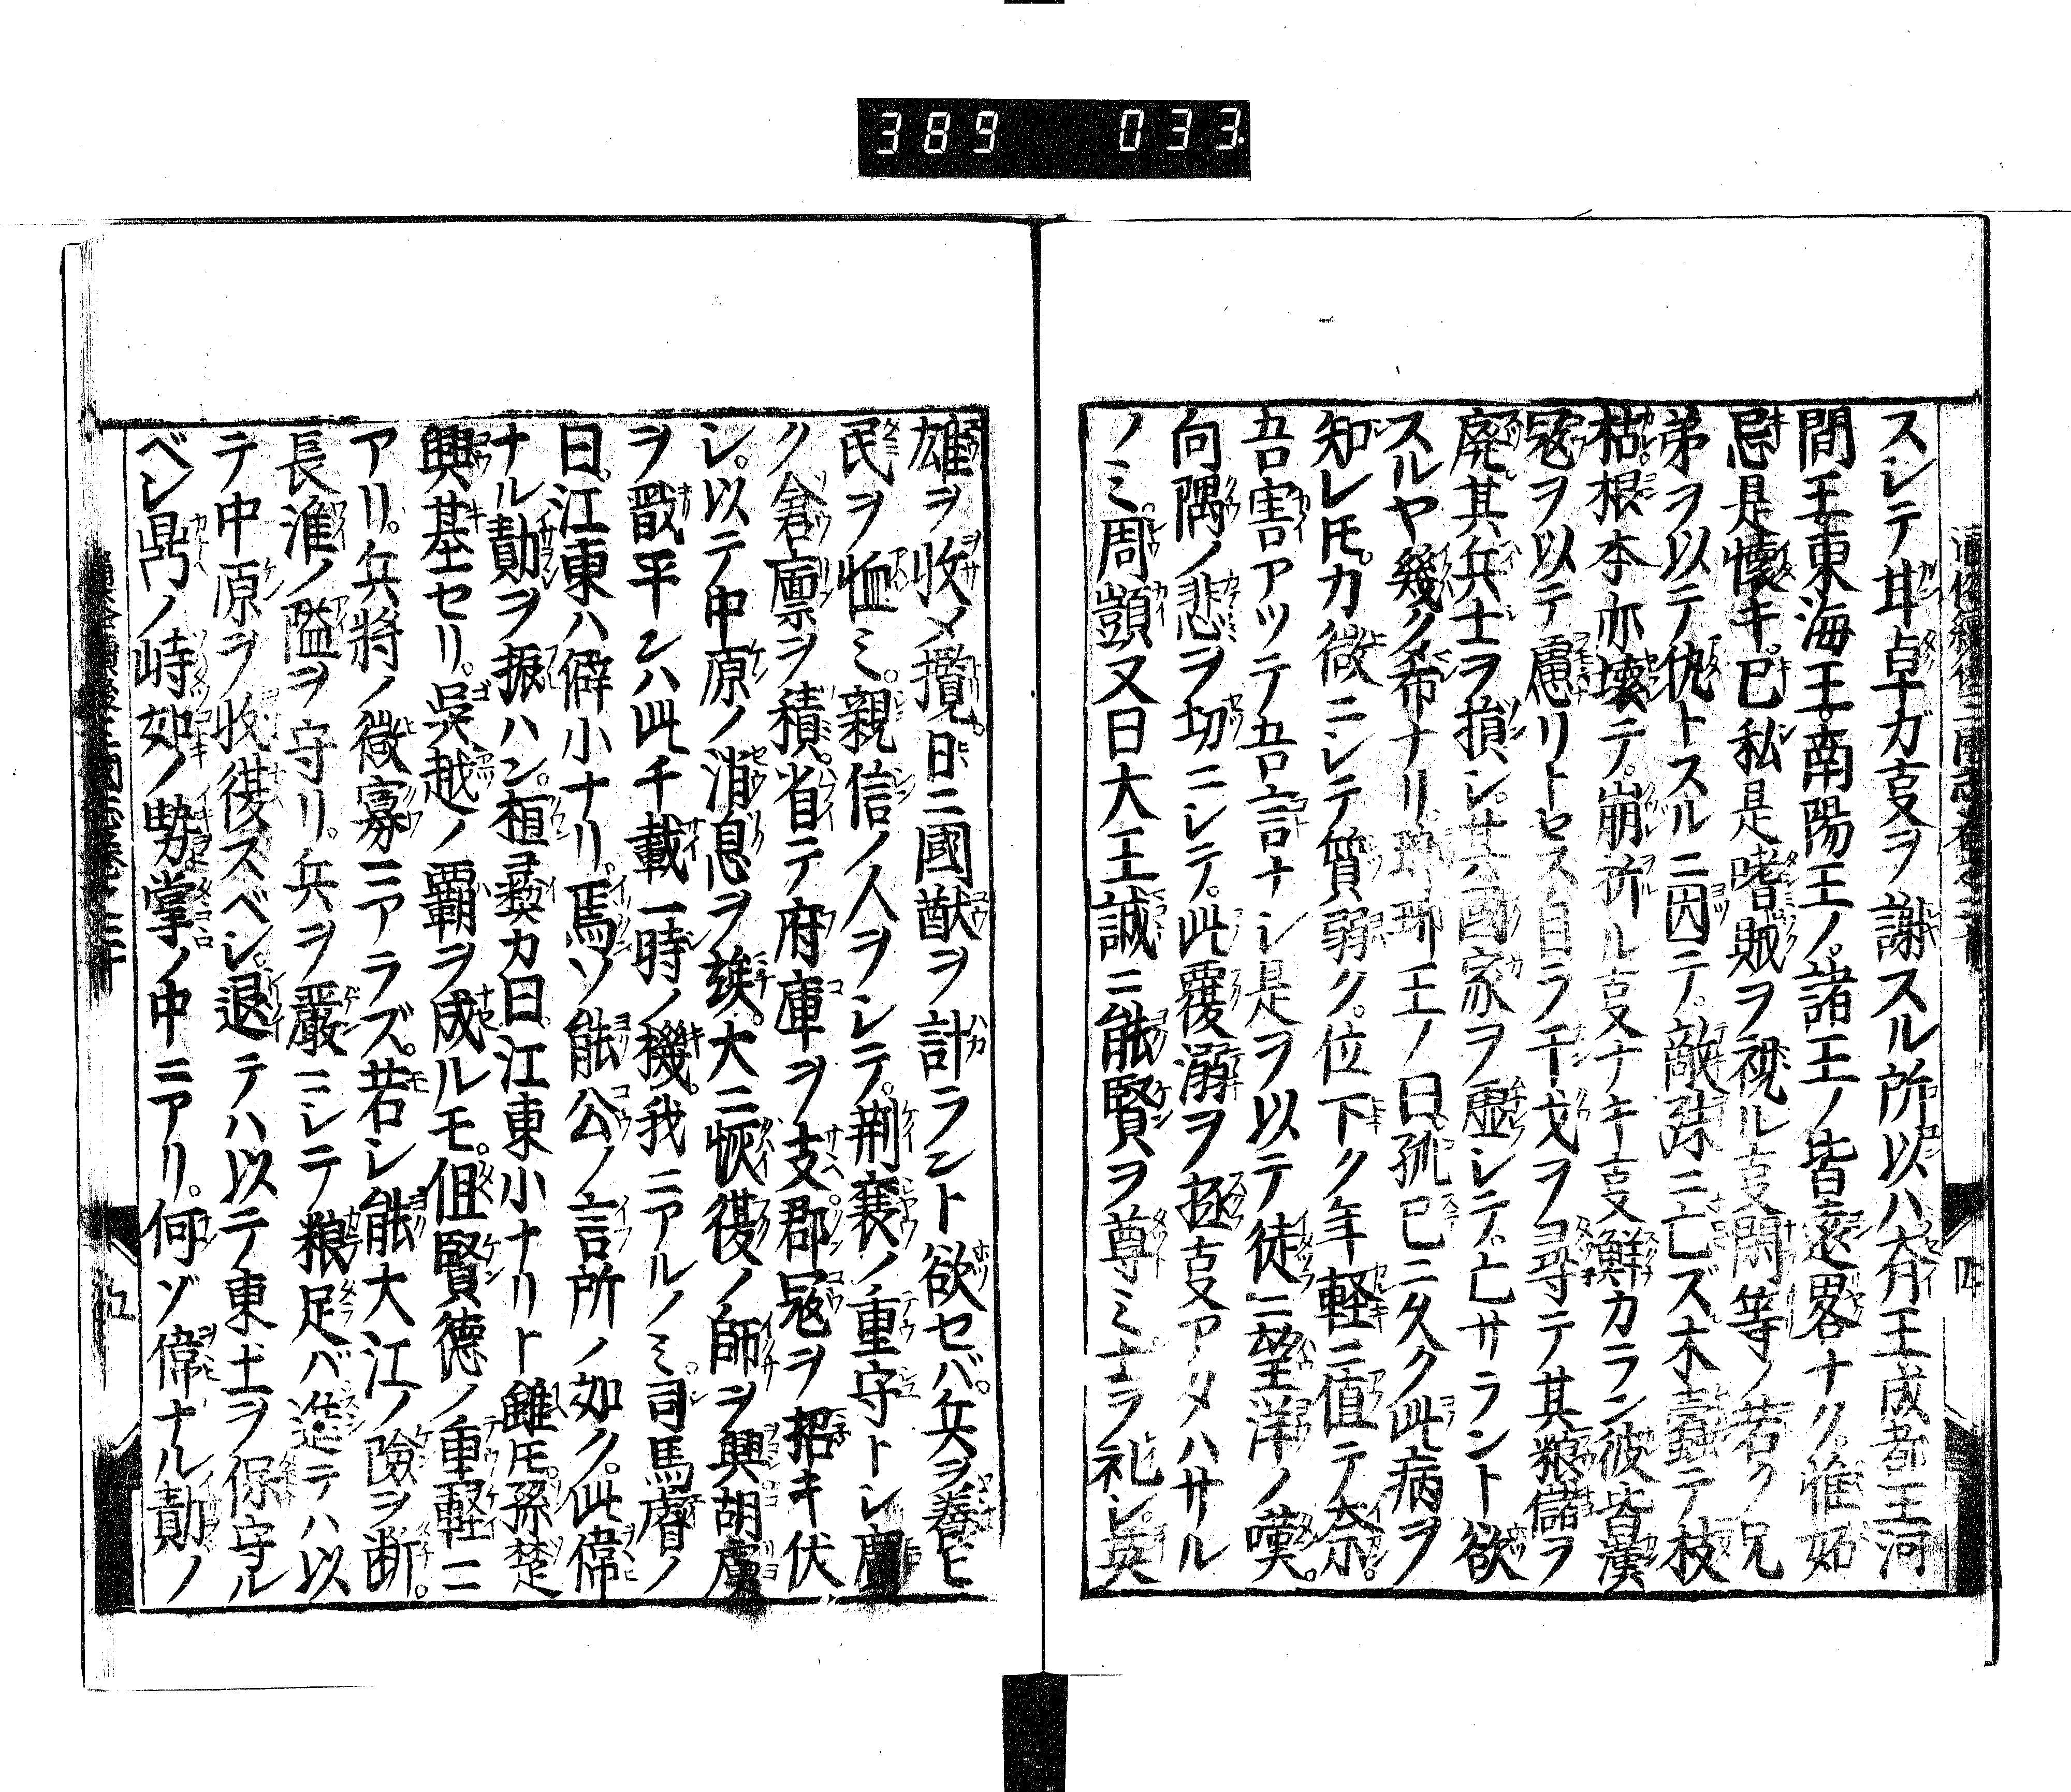 389 033
スシテ甘卓ガ叓ヲ謝スル所以ハ齊王成都王河
間王東海王南陽王ノ諸王ノ皆遠畧ナク惟妬
忌是懷キ已私是嗜賊ヲ視ル叓閑等ノ若ク兄
弟ヲ以テ仇トスルニ因テ敵殊ニ亡ズ木蠧テ枝
枯根本亦壞テ崩折ル叓ナキ叓鮮カラン彼皆漢
冦ヲ以テ慮リトセス自ラ干戈ヲ尋テ其粮儲ヲ
廃其兵士ヲ損シ其國家ヲ虚シテ亡サラント欲
スルヤ幾ク希ナリ瑯琊王ノ曰孤已ニ久ク此病ヲ
知レ𪜈力微ニシテ質弱ク位下ク年軽ニ値テ奈
吾害アツテ吾言ナシ是ヲ以テ徒ニ望洋ノ嘆
向隅ノ悲ヲ切ニシテ此覆溺ヲ拯叓アタハサル
ノミ周顗又曰大王誠ニ能賢ヲ尊ミ士ヲ礼シ英
雄ヲ收メ攬日ニ國猷ヲ計ラント欲セバ兵ヲ養ヒ
民ヲ恤ミ親信ノ人ヲシテ荆襄ノ重守トシ
ク倉廪ヲ積省テ府庫ヲ支郡冦ヲ招キ伏
シ以テ中原ノ消息ヲ竢大ニ恢復ノ師ヲ興胡虜
ヲ戩平シハ此千載一時ノ機我ニアルノミ司馬睿ノ
曰江東ハ僻小ナリ焉ソ能公ノ言所ノ如ク此偉
ナル勣ヲ振ハン桓彛カ曰江東小ナリト雖𪜈孫楚
興基セリ吳越ノ覇ヲ成ルモ但賢德ノ重軽ニ
アリ兵將ノ微寡ニアラズ若シ能大江ノ險ヲ断
長淮ノ隘ヲ守リ兵ヲ嚴ニシテ粮足バ進テハ以
テ中原ヲ收復スベシ退テハ以テ東土ヲ保守ル
ベシ鼎ノ峙如ノ勢掌ノ中ニアリ何ゾ偉ナル勣ノ